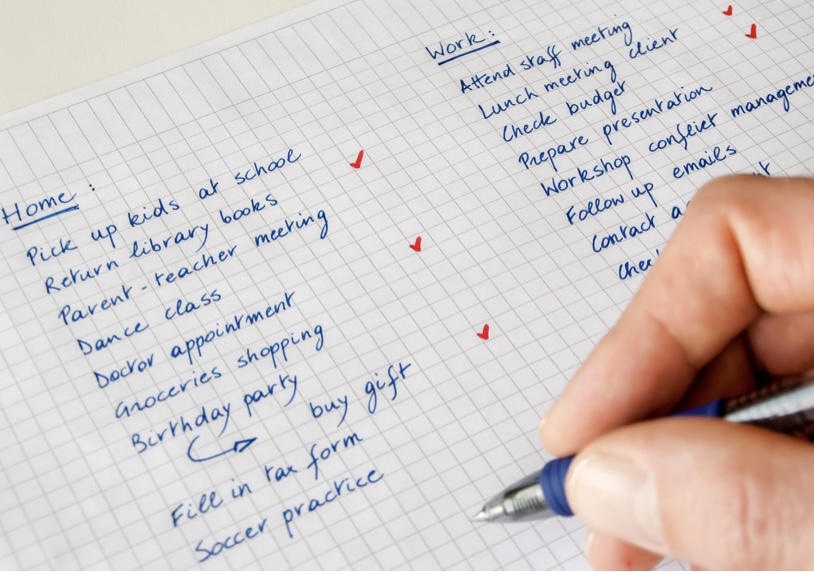 Home:
Pick up kids at school
Return library books
Parent-teacher meeting
Dance class
Doctor appointment
Groceries shopping
Birthday party
buy gift
Fill in tax form
Soccer practice
Work:
Attend staff meeting
Lunch meeting client
Check budget
Prepare presentation
Workshop conflict
Follow up emails
Contact